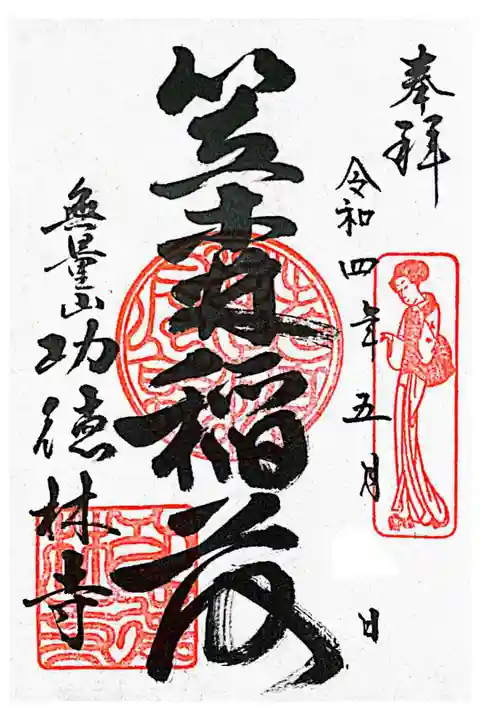 奉拝
令和四年五月 日
笠森稲荷
無量山功徳林寺